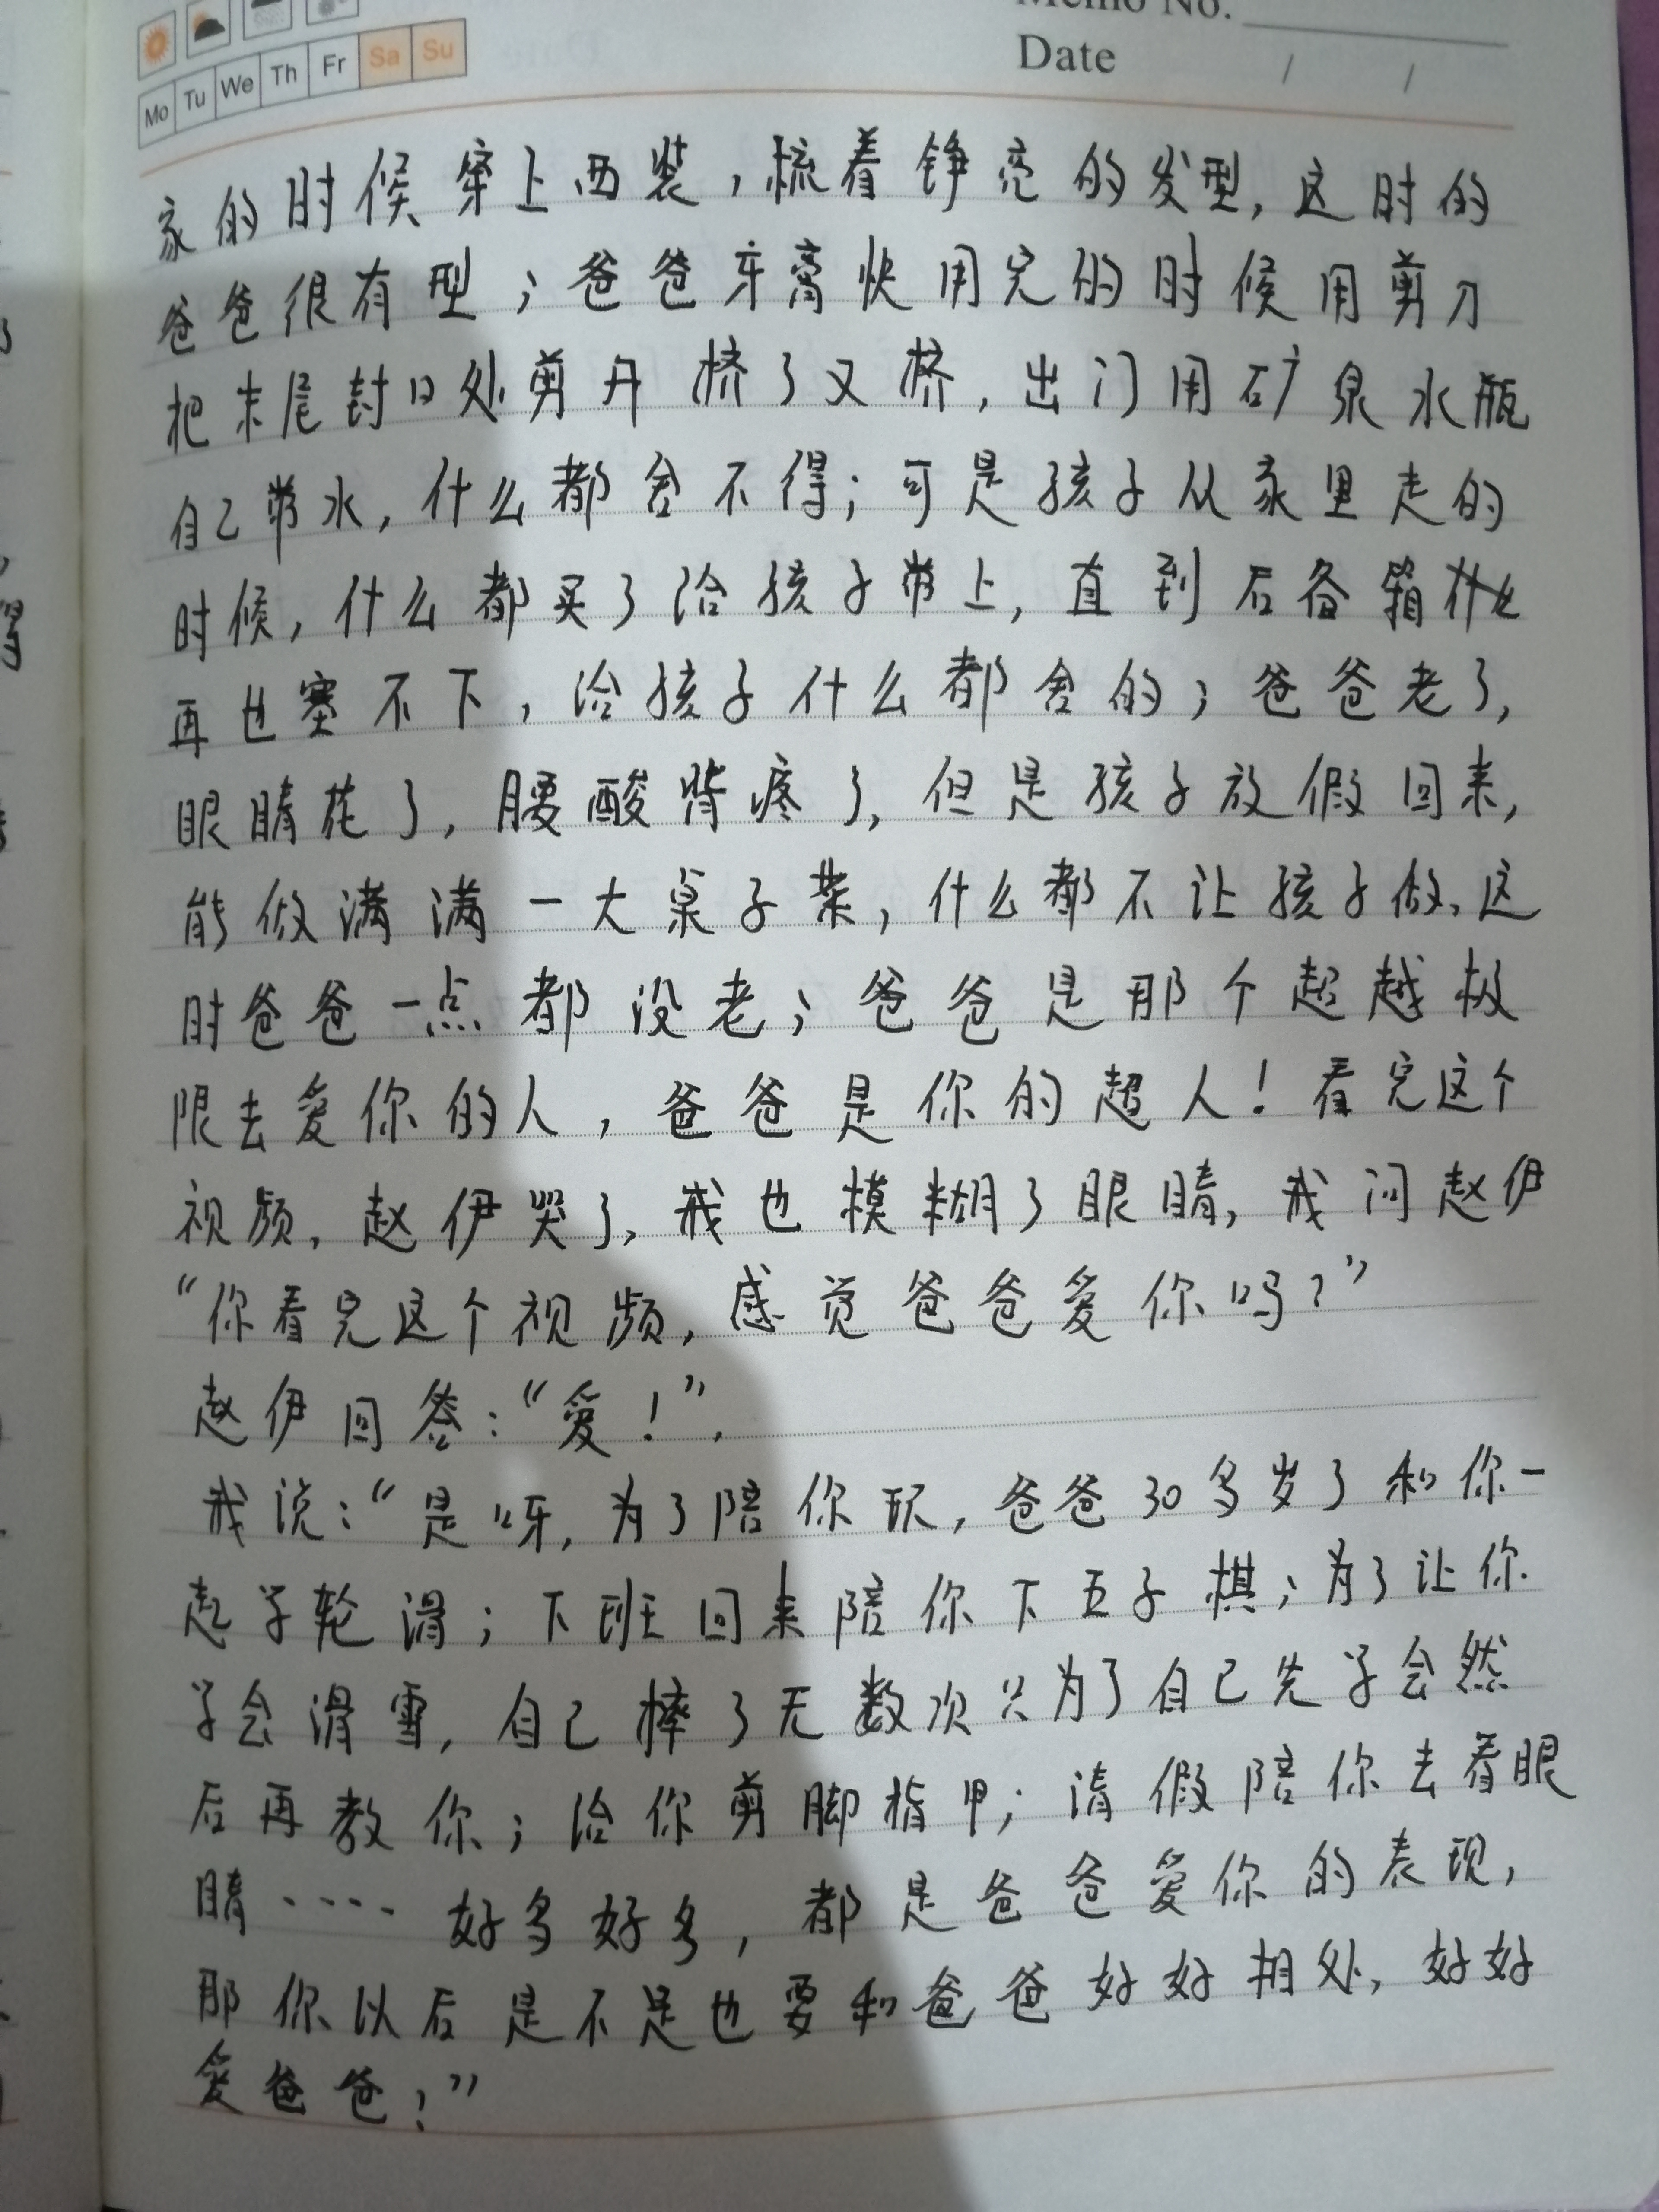 Memo No.
Mo Tu We Th Fr Sa Su
Date / /
家的时候穿上西装，梳着铮亮的发型，这时的
爸爸很有型；爸爸牙膏快用完的时候用剪刀
把末尾封口处剪开挤了又挤，出门用矿泉水瓶
自己带水，什么都舍不得；可是孩子从家里走的
时候，什么都买了给孩子带上，直到后备箱什么
再也塞不下，给孩子什么都舍的；爸爸老了，
眼睛花了，腰酸背疼了，但是孩子放假回来，
能做满满一大桌子菜，什么都不让孩子做，这
时爸爸一点都没老；爸爸是那个超越极
限去爱你的人，爸爸是你的超人！看完这个
视频，赵伊哭了，我也模糊了眼睛，我问赵伊
“你看完这个视频，感觉爸爸爱你吗？”
赵伊回答：“爱！”.
我说：“是呀，为了陪你玩，爸爸30多岁了和你一
起学轮滑；下班回来陪你下五子棋；为了让你
学会滑雪，自己摔了无数次只为了自己先学会然
后再教你；给你剪脚指甲；请假陪你去看眼
睛····好多好多，都是爸爸爱你的表现，
那你以后是不是也要和爸爸好好相处，好好
爱爸爸？”